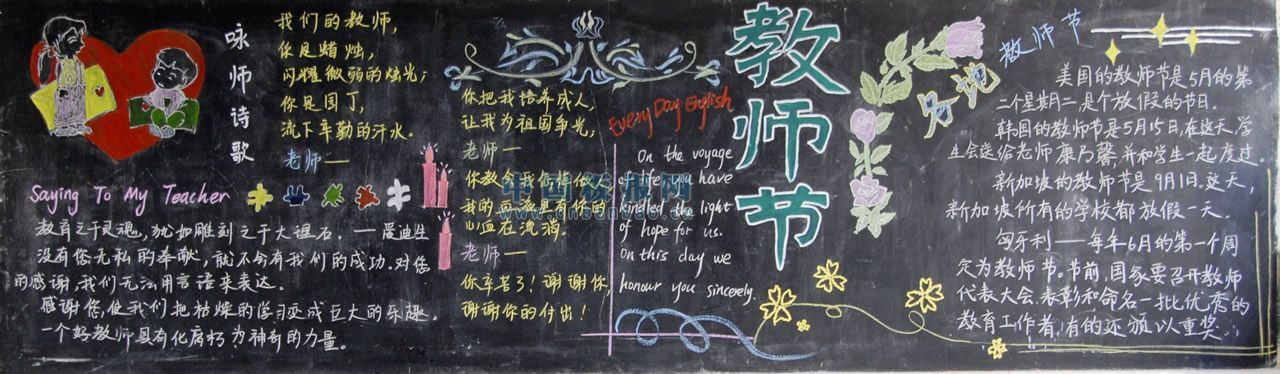 咏师诗歌
我们的教师,
你是蜡烛,
闪耀微弱的烛光;
你是园丁,
流下辛勤的汗水。
老师——
你把我培养成人,
让我为祖国争光,
老师——
你教会我怎样做人
我的血液里有你的
心血在流淌。
老师——
你辛苦了!谢谢你,
谢谢你的付出!
Saying To My Teacher
教育之于灵魂,犹如雕刻之于大理石。——爱迪生
没有您无私的奉献,就不会有我们的成功。对您
的感谢,我们无法用言语来表达。
感谢您,使我们把枯燥的学习变成巨大的乐趣。
一个好教师具有化腐朽为神奇的力量。
Every Day English
On the voyage
of life you have
kindled the light
of hope for us.
On this day we
honour you sincerely.
教师节
各地
教师节
美国的教师节是5月的第
二个星期二,是个放假的节日.
韩国的教师节是5月15日,在这天,学
生会送给老师康乃馨,并和学生一起度过.
新加坡的教师节是9月1日.这天,
新加坡所有的学校都放假一天.
匈牙利——每年6月的第一个周
定为教师节.节前,国家要召开教师
代表大会,表彰和命名一批优秀的
教育工作者,有的还颁以重奖.
中国板报网